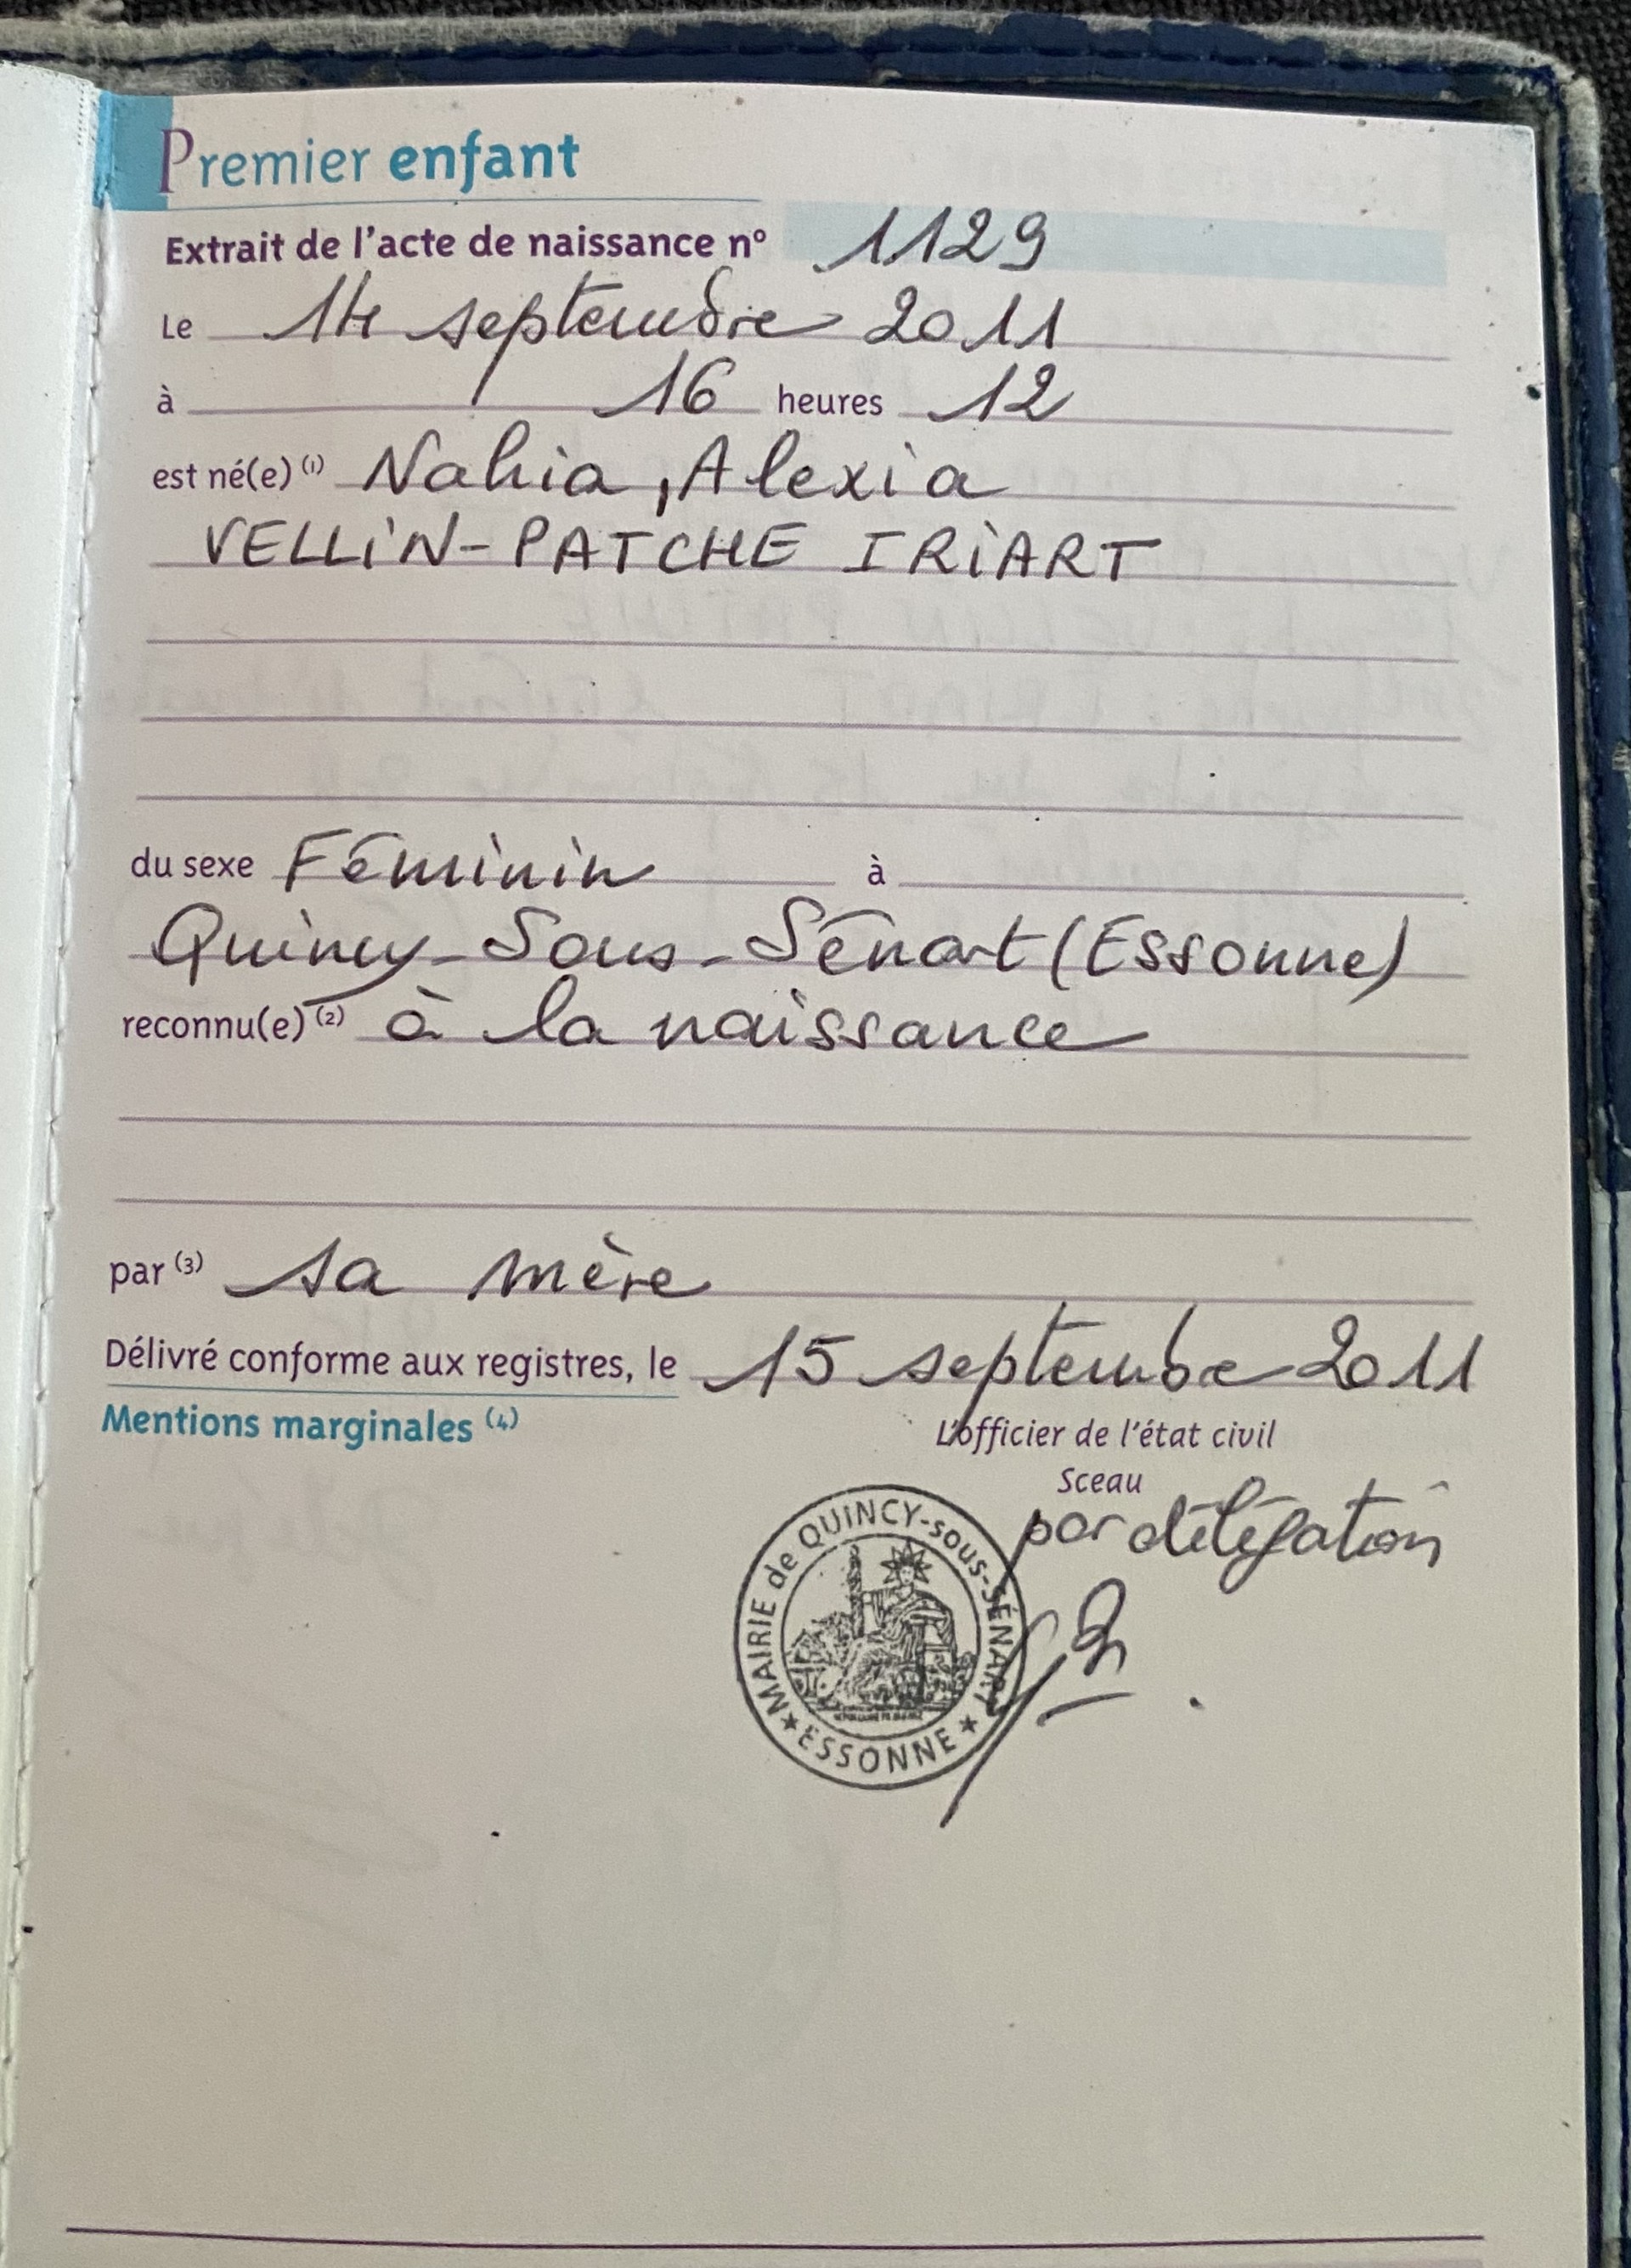 Premier enfant
Extrait de l'acte de naissance n° 1129
Le 14 septembre 2011
à 16 heures 12
est né(e) (1) Nahia, Alexia
VELLIN-PATCHE IRIART
du sexe Féminin à
Quincy-Sous-Sénart (Essonne)
reconnu(e) (2) à la naissance
par (3) sa mère
Délivré conforme aux registres, le 15 septembre 2011
Mentions marginales (4)
L'officier de l'état civil
Sceau
par délégation
MAIRIE de QUINCY-sous-SÉNART
★ ESSONNE ★